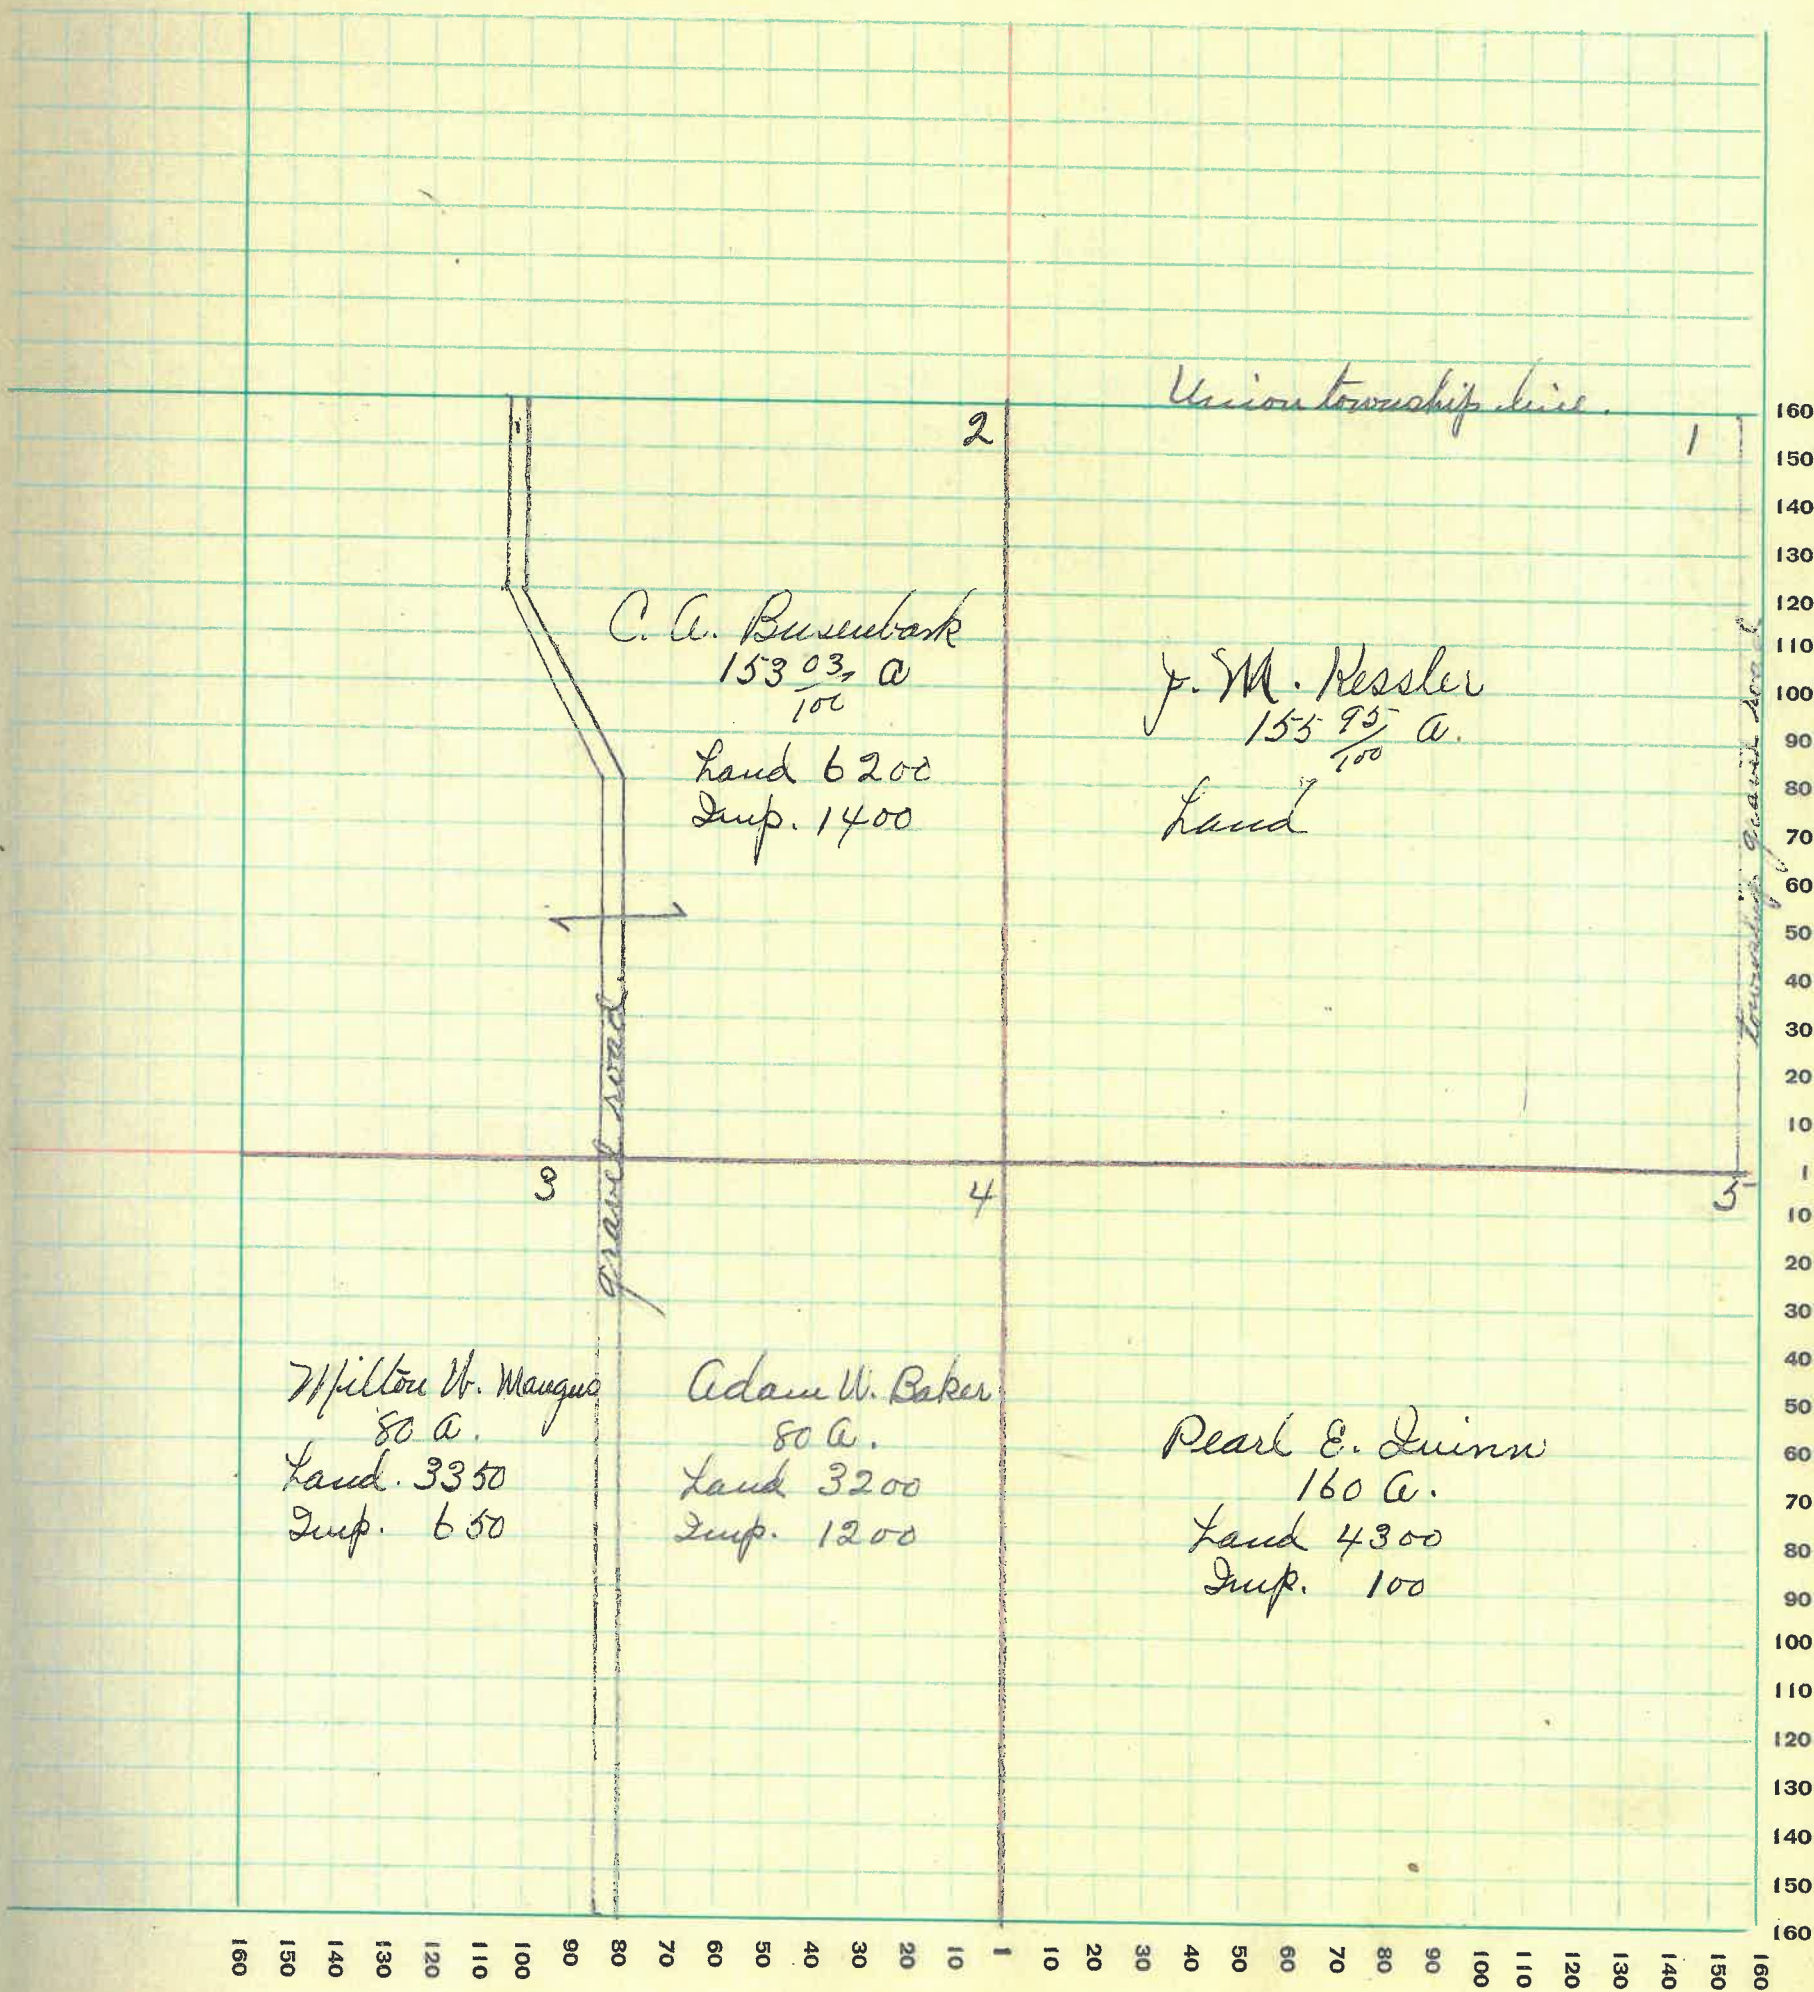 Union township line.
2
1
C. A. Busenbark
153 03/100 a
Land 6200
Imp. 1400
J. M. Kessler
155 95/100 a.
Land
township gravel road
gravel road
3
4
5
Milton W. Mangus
80 a.
Land. 3350
Imp. 650
Adam W. Baker
80 a.
Land 3200
Imp. 1200
Pearl E. Quinn
160 a.
Land 4300
Imp. 100
160
150
140
130
120
110
100
90
80
70
60
50
40
30
20
10
1
10
20
30
40
50
60
70
80
90
100
110
120
130
140
150
160
160 150 140 130 120 110 100 90 80 70 60 50 40 30 20 10 1 10 20 30 40 50 60 70 80 90 100 110 120 130 140 150 160